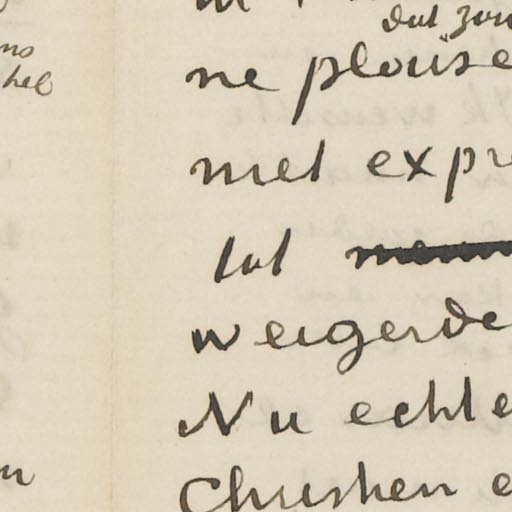 dat zou
ne plouse
met expr
tot
weigerde
Nu echte
Christen e